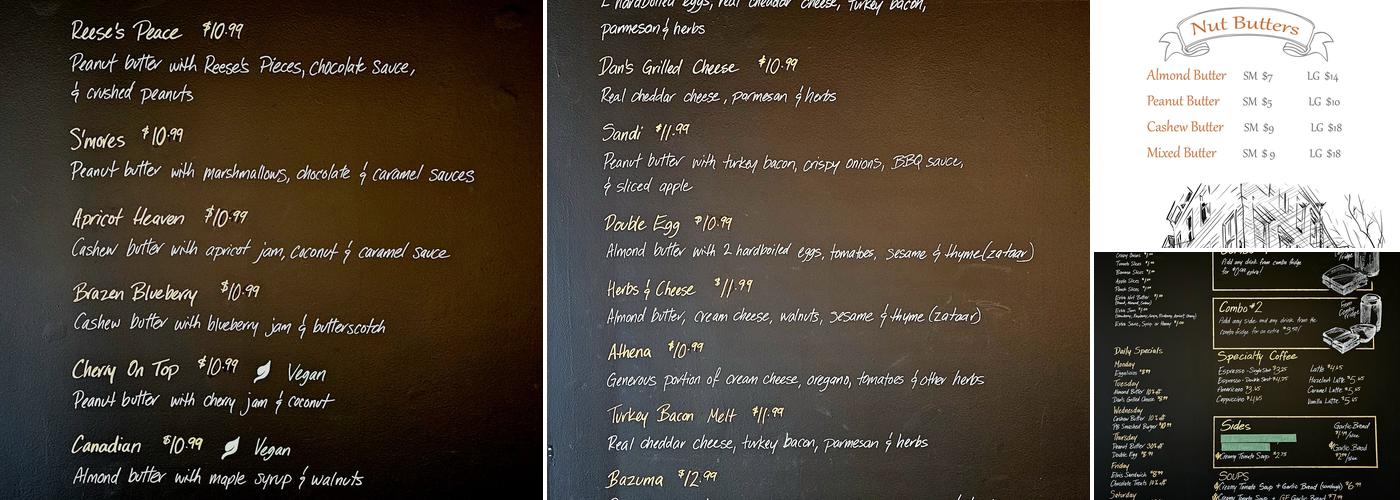 Reese's Peace $10.99
Peanut butter with Reese's Pieces, chocolate sauce,
& crushed peanuts
S'mores $10.99
Peanut butter with marshmallows, chocolate & caramel sauces
Apricot Heaven $10.99
Cashew butter with apricot jam, coconut & caramel sauce
Brazen Blueberry $10.99
Cashew butter with blueberry jam & butterscotch
Cherry On Top $10.99 Vegan
Peanut butter with cherry jam & coconut
Canadian $10.99 Vegan
Almond butter with maple syrup & walnuts
2 hardboiled eggs, real cheddar cheese, turkey bacon,
parmesan & herbs
Dan's Grilled Cheese $10.99
Real cheddar cheese, parmesan & herbs
Sandi $11.99
Peanut butter with turkey bacon, crispy onions, BBQ sauce,
& sliced apple
Double Egg $10.99
Almond butter with 2 hardboiled eggs, tomatoes, sesame & thyme (zataar)
Herbs & Cheese $11.99
Almond butter, cream cheese, walnuts, sesame & thyme (zataar)
Athena $10.99
Generous portion of cream cheese, oregano, tomatoes & other herbs
Turkey Bacon Melt $11.99
Real cheddar cheese, turkey bacon, parmesan & herbs
Bazuma $12.99
Nut Butters
Almond Butter SM $7 LG $14
Peanut Butter SM $5 LG $10
Cashew Butter SM $9 LG $18
Mixed Butter SM $9 LG $18
Tomato Slices
Banana Slices
Apple Slices
Peach Slices
Extra Nut Butter
Extra Jam
Add any drink from combo fridge
for extra!
Combo #2
Add any side and any drink from the
combo fridge for an extra
From Combo Fridge
Daily Specials
Monday
Eggalicious
Tuesday
Almond Butter 10% off
Dan's Grilled Cheese
Wednesday
Cashew Butter 10% off
PB Smashed Burger
Thursday
Peanut Butter 30% off
Double Egg
Friday
Elvis Sandwich
Chocolate Treats 10% off
Saturday
Specialty Coffee
Espresso - Single Shot $3.25
Espresso - Double Shot $4.25
Americano $3.45
Cappuccino $4.65
Latte $4.65
Hazelnut Latte $5.65
Caramel Latte $5.65
Vanilla Latte $5.65
Sides
Garlic Bread
Garlic Bread
Creamy Tomato Soup $2.75
SOUPS
Creamy Tomato Soup + Garlic Bread
Creamy Tomato Soup + GF Garlic Bread